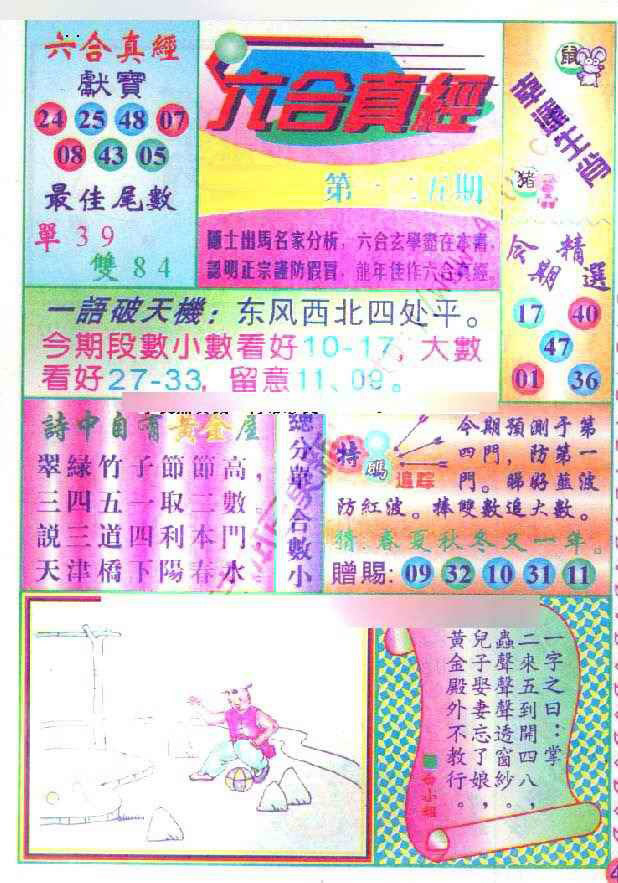 六合真經
獻寶
24 25 48 07
08 43 05
最佳尾數
單 3 9
雙 8 4
六合真經
第一二五期
隱士出馬名家分析，六合玄學盡在本書，
認明正宗謹防假冒，龍年佳作六合真經。
鼠
幸運生肖
猪
今期精選
17 40
47
01 36
一語破天機：东风西北四处平。
今期段數小數看好10-17，大數
看好27-33，留意11、09。
詩中自有黃金屋
翠綠竹子節節高，
三四五一取二數。
説三道四利本門，
天津橋下陽春水
總分單 合數小
特碼追踪
今期預測于第
四門，防第一
門。睇好藍波
防紅波。捧雙數追大數。
猜：春夏秋冬又一年。
贈賜：09 32 10 31 11
一字之曰：掌
二來五到開四八，
蟲聲聲聲透窗紗。
兒子娶妻忘了娘，
黃金殿外不教行。
小姐
4